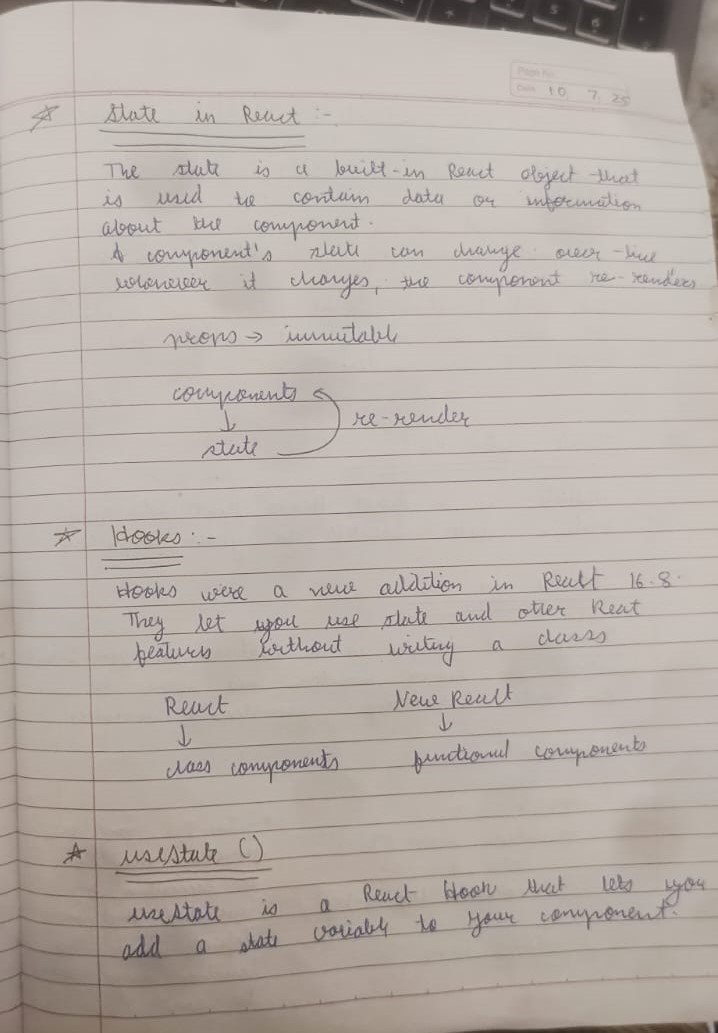 Page No.
Date 10 7 25
☆ State in React :-
The state is a built-in React object that
is used to contain data or information
about the component.
A component's state can change over time
whenever it changes, the component re-renders
props → immutable
components
↓
re-render
state
☆ Hooks :-
Hooks were a new addition in React 16.8.
They let you use state and other React
features without writing a class
React New React
↓ ↓
class components functional components
☆ useState ()
useState is a React Hook that lets you
add a state variable to your component.